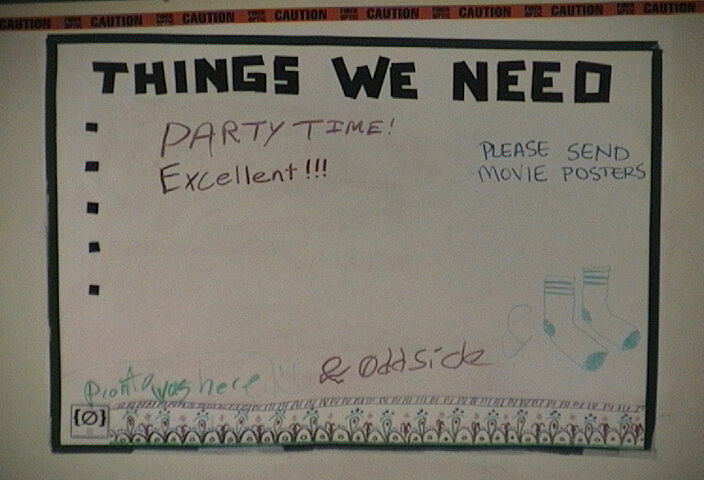 CAUTION CAUTION CAUTION CAUTION CAUTION CAUTION CAUTION CAUTION
THINGS WE NEED
PARTY TIME!
Excellent!!!
PLEASE SEND
MOVIE POSTERS
& Oddside
was here
{Ø}